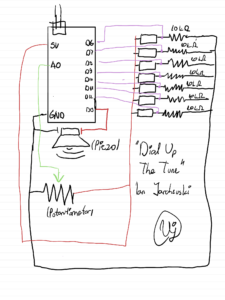 10kΩ
5V
D6
10kΩ
A0
D7
D2
10kΩ
D3
10kΩ
D0
10kΩ
D4
10kΩ
D1
10kΩ
GND
D5
(Piezo)
"Dial Up
The Tune"
Ian
(Potentiometer)